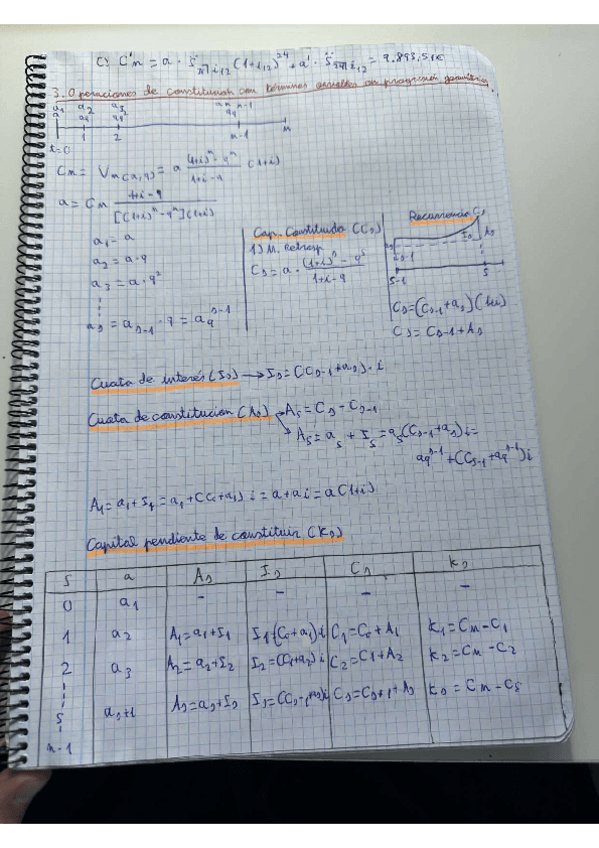 C) C'm = a · S̈ n⌉i12 (1+i12)^24 + a' · S̈ m⌉i12 = 9.893,51€
3. Operaciones de constitución con términos variables en progresión geométrica.
a1 a2 a3 n-1
a aq
t=0 1 2 n-1 n
Cm = Vm(a,q) = a ((1+i)^n - q^n)/(1+i-q) (1+i)
a = Cm (1+i-q)/([(1+i)^n - q^n](1+i))
a1 = a
a2 = a·q
a3 = a·q²
as = as-1 · q = aq^s-1
Cap. Constituido (Cs)
1) M. Retrosp
Cs = a · ((1+i)^s - q^s)/(1+i-q)
Recurrencia Cs
Is As
s-1 s
Cs=(Cs-1+as)(1+i)
Cs = Cs-1+As
Cuota de interés (Is) → Is=(Cs-1+as)·i
Cuota de constitución (As) → As = Cs - Cs-1
As = as + Is = as(Cs-1+as)i=
aq^s-1 + (Cs-1+aq^s-1)i
A1=a1+I1=a1+(C0+a1)i=a+ai=a(1+i)
Capital pendiente de constituir (Ks)
S a As Is Cs Ks
0 a1 - - - -
1 a2 A1=a1+I1 I1=(C0+a1)i C1=C0+A1 K1=Cm-C1
2 a3 A2=a2+I2 I2=(C1+a2)i C2=C1+A2 K2=Cm-C2
s as+1 As=as+Is Is=(Cs-1+as)i Cs=Cs+1+As Ks=Cm-Cs
n-1